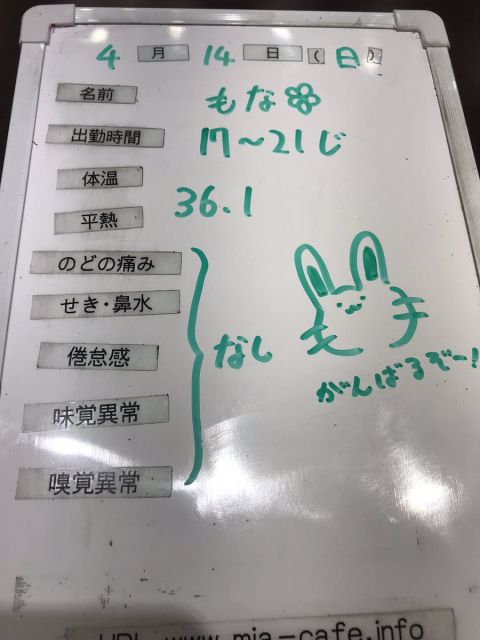 4 月 14 日 (日)
名前 もな
出勤時間 17〜21じ
体温
平熱 36.1
のどの痛み
せき・鼻水
倦怠感 なし
味覚異常
嗅覚異常
がんばるぞー!
URL www.mia-cafe.info